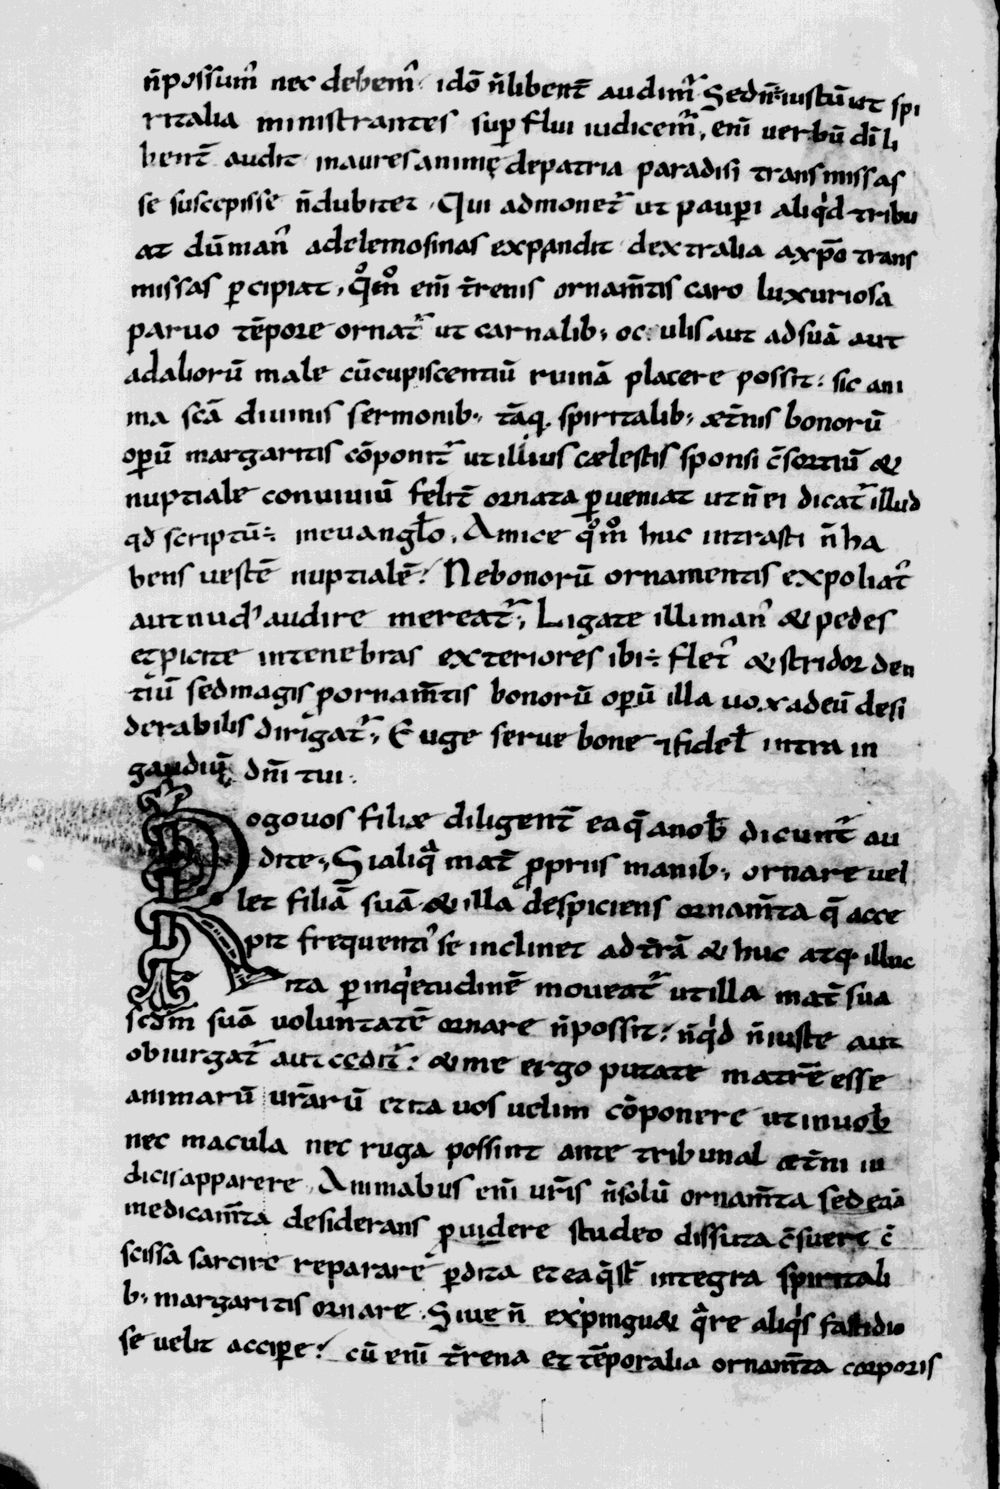 n̄possum᷒ nec debem᷒ · idō n̄libent̄ audim᷒ Sedn̄ · iustū ut spi
ritalia ministrantes sup flui iudicem᷒, em̄ verbū dī li
bent̄ audit inaures animę depatria paradisi transmissas
se suscepisse n̄dubitet · Qui admonet᷒ ut paupi aliqid tribu
at dūman᷒ adelemosinas expandit dextralia axp̄o trans
missas pcipiat, qo mo em̄ t̄renis ornam̄tis caro luxuriosa
paruo tēpore ornat᷒ ut carnalib; oculis aut adsuā aut
adaliorū male cūcupiscentiū ruinā placere possit: sic ani
ma scā diuinis sermonib; tāq. spiritalib; æt̄nis bonorū
opū margaritis cōponit᷒ ut illius cælestis sponsi c̄sortiū &
nuptiale conuiuiū felit̄ ornata pueniat ut n̄ ei dicat᷒ illud
qđ scriptū÷; ineuangło, Amice qo mo huc intrasti n̄ ha
bens uestē nuptialē? Nebonorū ornamentis expoliat᷒
aut nud᷒ audire mereat᷒; Ligate illi man᷒ & pedes
et picite intenebras exteriores ibi÷; flet᷒ & stridor den
tiū sedmagis pornam̄tis bonorū opū illa uox adeū desi
derabilis dirigat᷒; Euge serue bone &fideł intra in
gaudiū dn̄i tui.
Rogo uos filiæ diligent̄ ea q̄ anob̄ dicunt᷒ au
dite; Si aliqa mat̄ ppriis manib; ornare uel
let filiā suā & illa despiciens ornam̄ta q̄ acce
pit frequenti᷒ se inclinet ad t̄rā & huc atq. illuc
ita p inqietudinē moueat᷒ ut illa mat̄ sua
scdm̄ suā uoluntatē ornare n̄possit? n̄qid n̄iuste aut
obiurgat᷒ aut cedit᷒? & me ergo putate matrē esse
animarū ur̄arū et ita uos uelim cōponere ut in uob̄
nec macula nec ruga possint ante tribunal æt̄ni iu
dicis apparere, Animabus em̄ ur̄is n̄solū ornam̄ta sed etiā
medicam̄ta desiderans puidere studeo dissuta c̄suere c̄
scissa sarcire reparare pdita et ea q̄ st̄ integra spiritali
b; margaritis ornare. Siue n̄ expingu& qare aliqis fastidio
se uelit accipe? cū em̄ t̄rena et tēporalia ornam̄ta corporis